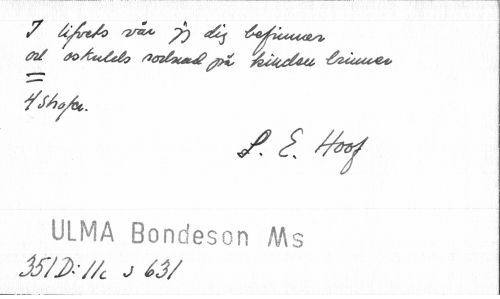 I lifvets vår jg dig befinner
od oskulds rodnad på kinden brinner
=
4 strofer.
S. E. Hoof
ULMA Bondeson Ms
351 D: 11c s 631